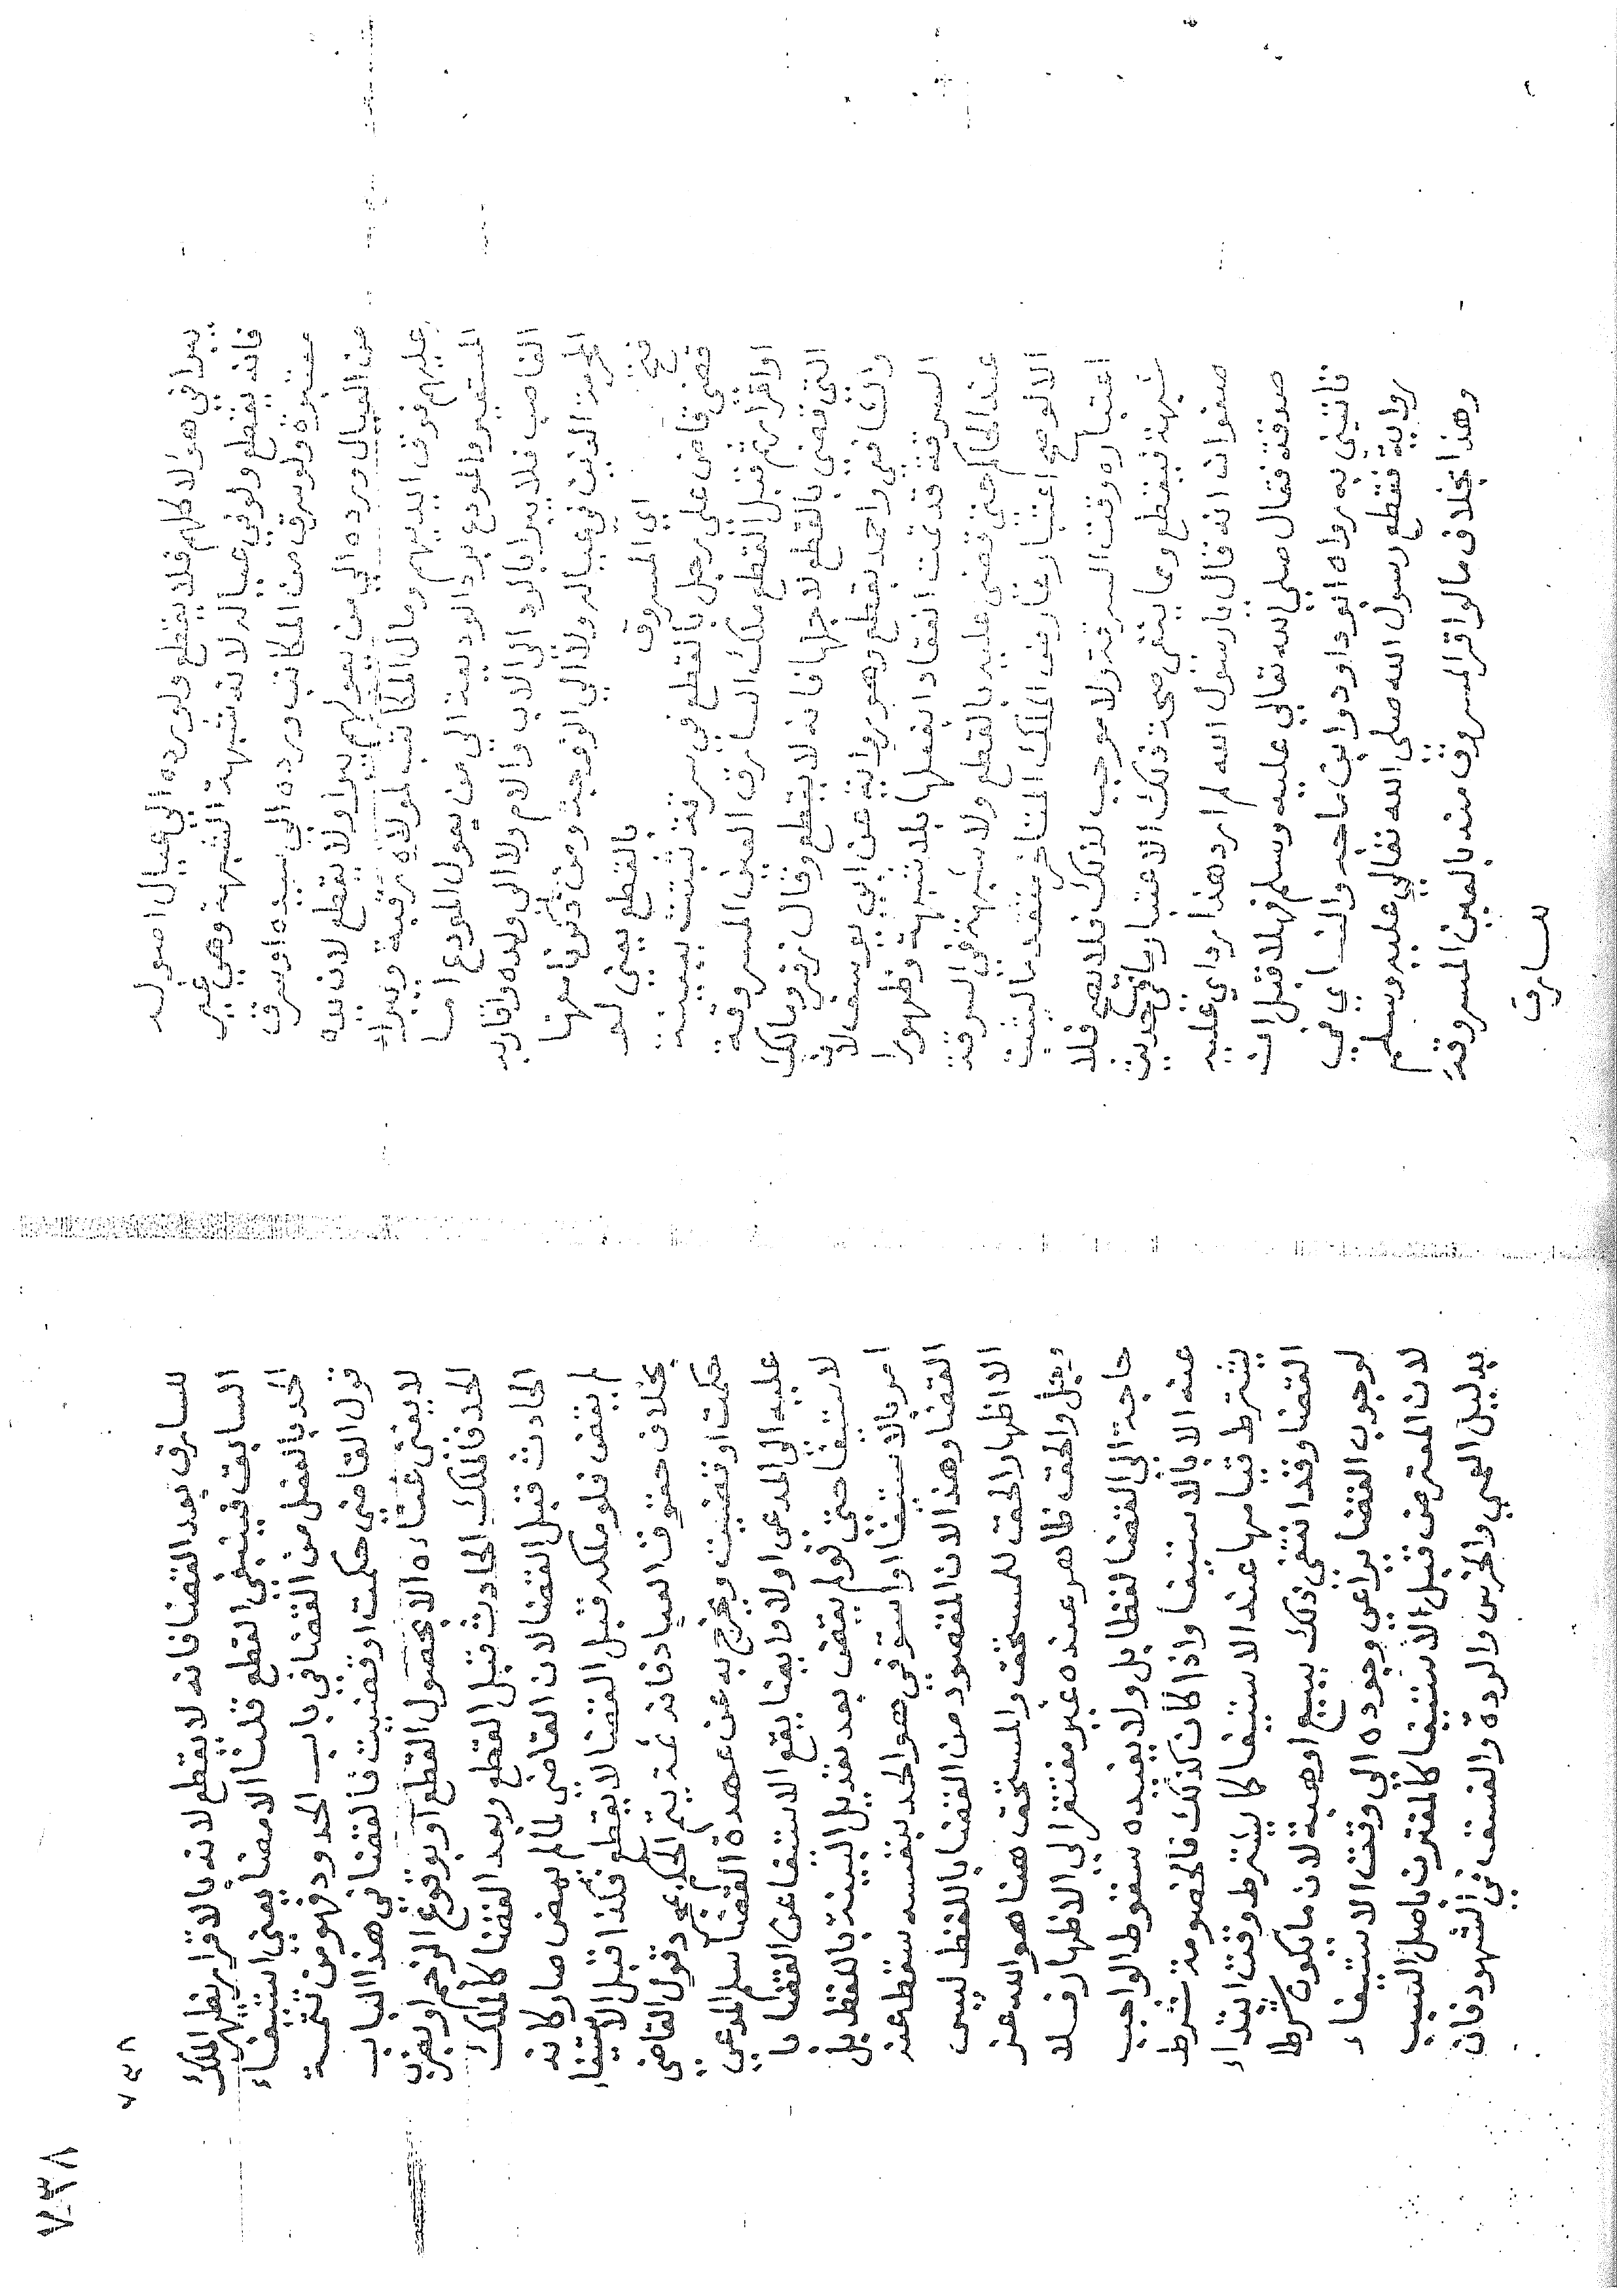 يبرا في هولا كلهم فلا يقطع ولو رده الي عيال اصوله
فانه يقطع ولو في عياله لانه شبهة الشبهة وهي غير
معتبرة ولو سرق من المكاتب ورده الي سيده او سرق
من العيال ورده الي من يعولهم يبرا ولا يقطع لان يده
عليهم فوق ايديهم ومال المكاتب لمولاه رقبة ويبراء
المستعير والمودع برد الوديعة الي من يعول المودع اما
الغاصب فلا يبرا بالرد الى الاب والام ولا الى ولده واقاربه
المحرمة الذين في عياله ولا الي الزوجة ومن
اي المسروق بالقطع يعني لو
قضى قاض على رجل بالقطع في سرقة ثبتت ببينة
او اقرار ثم قبل القطع ملك السارق العين المسروقة
التي قضي بالقطع لاجلها فانه لا يقطع وقال زفر ومالك
والشافعي واحمد يقطع وهو رواية عن ابي يوسف لان
السرقة قد تمت انعقادا بفعلها بلا شبهة وظهورا
عند الحاكم حتى قضى عليه بالقطع ولا شبهة في السرقة
الا لو صح اعتبار عارض الملك المتاخر متقدما ليثبت
اعتباره وقت السرقة ولا موجب لذلك فلا يصح فلا
شبهة فيقطع ومما ينفي صحة ذلك الاعتبار ما في حديث
صفوان انه قال يا رسول الله لم ارد هذا رداي عليه
صدقة فقال صلى الله تعالي عليه وسلم فهلا قبل ان
تاتيني به رواه ابو داود وابن ماجه والنساي في
رواية فقطع رسول الله صلى الله تعالي عليه وسلم
وهذا بخلاف ما لو اقر المسروق منه بالعين المسروقة
للسارق
٧٣٨
٧٣٨
للسارق بعد القضا فانه لا يقطع لانه بالاقرار يظهر الملك
السابق فينتفي القطع قلنا الامضا يعني استيفاء
الحد بالفعل من القضا في باب الحدود فهو من تتمة
قول القاضي حكمت او قضيت فالقضا في هذا الباب
لا يغني غناءه الا بحصول القطع او بوقوع الرجم او بضرب
الحد فالملك الحادث قبل القطع وبعد القضا كالملك
الحادث قبل القضا لان القاضي لما لم يمض صار كانه
لم يقض فلو ملكه قبل القضا لا يقطع فكذا قبل الاستيفاء
بخلاف حقوق العباد فانه ثمة يتم الحكم بمجرد قول القاضي
حكمت او قضيت ويخرج به عن عهدة القضا سلم المدعي
عليه الى المدعي او لا وايضا يقع الاستغنا عن القضا با
لاستيفا حتى لو لم يقض بعد تعديل البينة باللفظ بل
امر بالاستيفا او استوفي هو الحد بنفسه سقط عند
القضا وهذا لان المقصود من القضا باللفظ ليس
الا اظهار الحق للمستحق والمستحق هنا هو الله عز
وجل والحق ظاهر عنده غير مفتقر الي الاظهار فلا
حاجة الى القضا لفظا بل ولا يفيده سقوط الواجب
عنه الا بالاستيفا واذا كان كذلك فالخصومة شرط
يشترط قيامها عند الاستيفا كما يشترط وقت ابتداء
القضا وقد انتفى ذلك ببيع او هبة لان ما يكون شرطا
لوجوب القضا يراعى وجوده الي وقت الاستيفاء
لان المعترض قبل الاستيفا كالمقترن باصل السبب
بدليل العمى والخرس والردة والفسق في الشهود فان